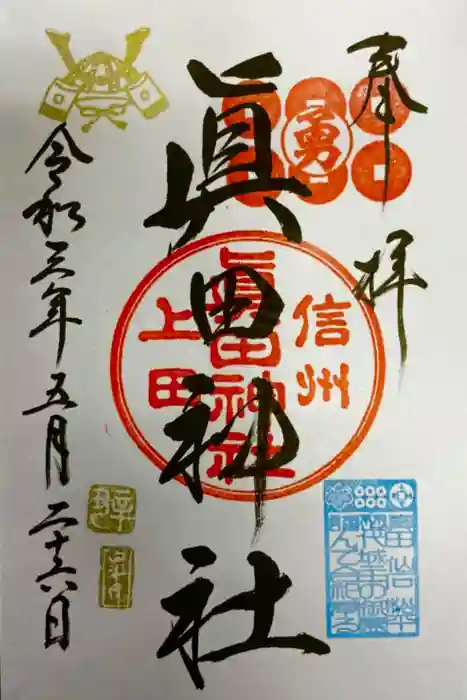 奉拝
勇
眞田神社
信州
眞田神社
上田
令和三年五月二十六日